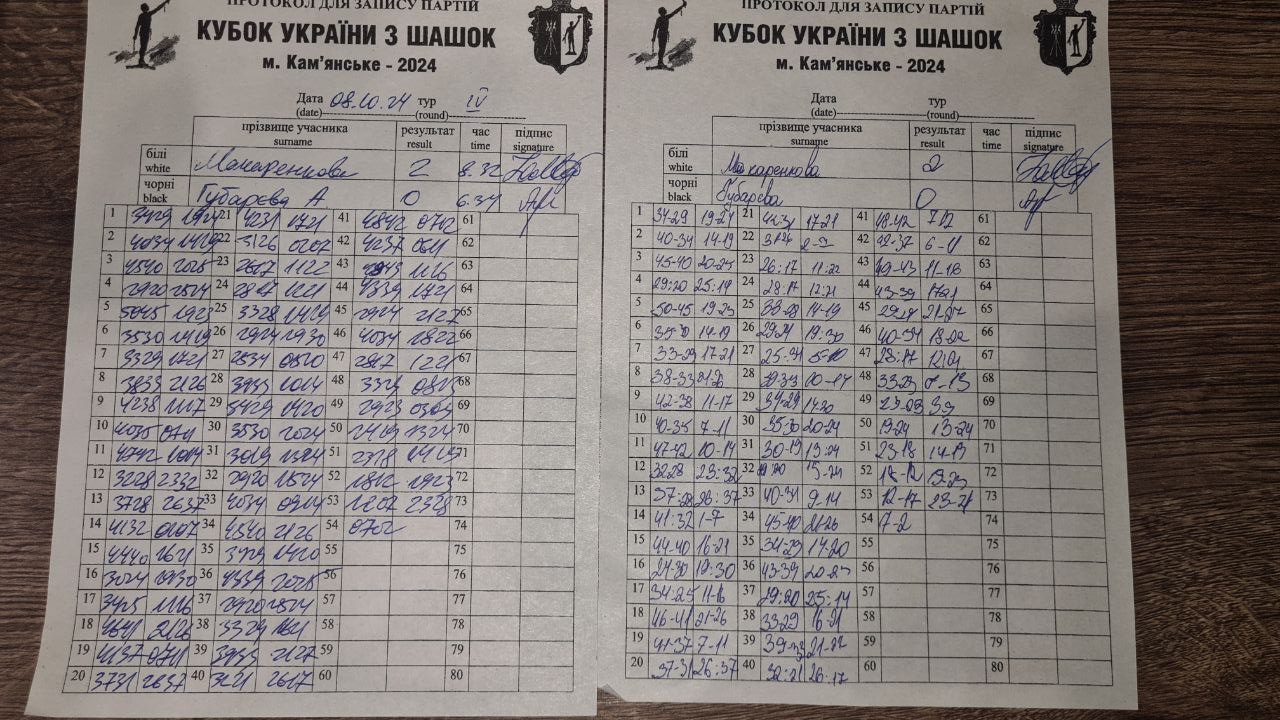 ПРОТОКОЛ ДЛЯ ЗАПИСУ ПАРТІЙ
КУБОК УКРАЇНИ З ШАШОК
м. Кам'янське - 2024
Дата 08.10.24 тур IV
(date) (round)
прізвище учасника результат час підпис
surname result time signature
білі
white 2
чорні Губарєва А 0
black
1 21 41 4842 0712 61
2 4034 1419 22 3126 42 4237 0611 62
3 4540 2025 23 2617 1122 43 1116 63
4 2920 2514 24 2817 1221 44 4339 1721 64
5 5045 1923 25 3328 1419 45 2924 2127 65
6 3530 1419 26 2924 1930 46 4034 1822 66
7 3329 1721 27 2534 0510 47 2817 1221 67
8 3833 2126 28 3933 1014 48 3329 0813 68
9 4238 1117 29 3429 1420 49 2923 0309 69
10 4035 0711 30 3530 2024 50 1324 70
11 4742 1014 31 3019 1324 51 2318 1419 71
12 3228 2332 32 2920 1524 52 1812 1923 72
13 3728 2637 33 4034 0914 53 1207 2328 73
14 4132 0107 34 4540 2126 54 0702 74
15 4440 1621 35 3429 1420 55 75
16 36 4339 2025 56 76
17 3425 1116 37 2920 2514 57 77
18 4641 2126 38 3329 1621 58 78
19 4137 0711 39 3933 2127 59 79
20 3731 2637 40 3221 2617 60 80
ПРОТОКОЛ ДЛЯ ЗАПИСУ ПАРТІЙ
КУБОК УКРАЇНИ З ШАШОК
м. Кам'янське - 2024
Дата тур
(date) (round)
прізвище учасника результат час підпис
surname result time signature
білі Макаренкова 2
white
чорні Губарєва 0
black
1 34-29 19-24 21 17-21 41 48-42 61
2 40-34 14-19 22 42 42-37 6-11 62
3 45-40 20-25 23 26:17 11:22 43 11-16 63
4 29:20 25:14 24 28:17 12:21 44 43-39 64
5 50-45 19-23 25 33-28 14-19 45 65
6 14-19 26 29-24 19:30 46 40-34 18-22 66
7 33-29 17-21 27 25:34 5-10 47 28:17 67
8 38-33 28 39-33 48 68
9 42-38 11-17 29 34-29 49 69
10 40-35 7-11 30 35-30 20-24 50 13-24 70
11 47-42 10-14 31 30-19 13:24 51 23-18 14-19 71
12 32-28 23:32 32 15-24 52 72
13 37:28 26:37 33 9-14 53 12-17 73
14 41:32 1-7 34 45-40 21-26 54 7-2 74
15 44-40 16-21 35 34-29 14-20 55 75
16 19:30 36 43-39 20-25 56 76
17 34:25 11-16 37 29:20 25:14 57 77
18 46-41 21-26 38 33-29 16-21 58 78
19 41-37 7-11 39 59 79
20 37-31 26:37 40 32:21 26:17 60 80